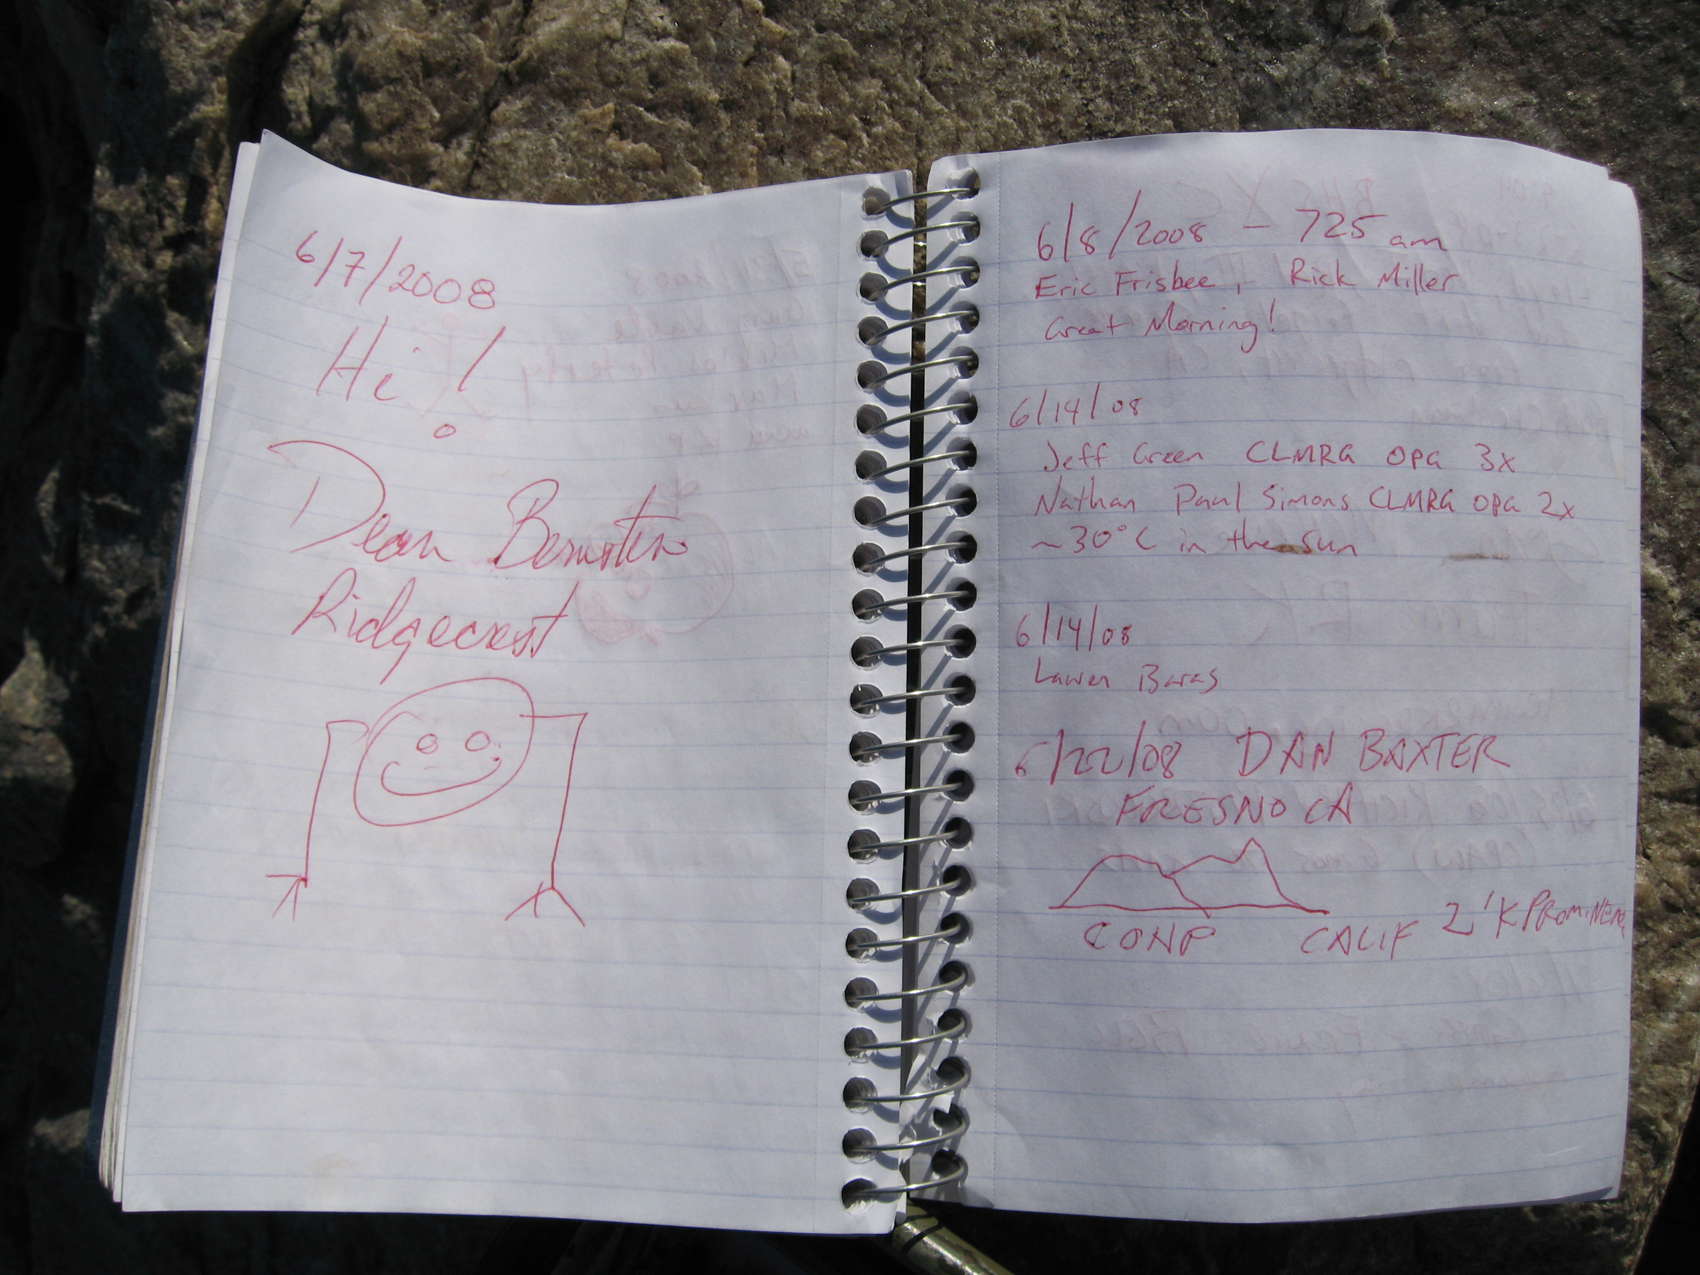 6/7/2008
Hi!
Dean
Ridgecrest
6/8/2008 – 725 am
Eric Frisbee, Rick Miller
Great Morning!
6/14/08
Jeff Green CLMRG OPG 3x
Nathan Paul Simons CLMRG OPG 2x
~30°C in the sun
6/14/08
Lauren Baras
6/22/08 DAN BAXTER
FRESNO CA
CALIF 2'K PROMINENCE